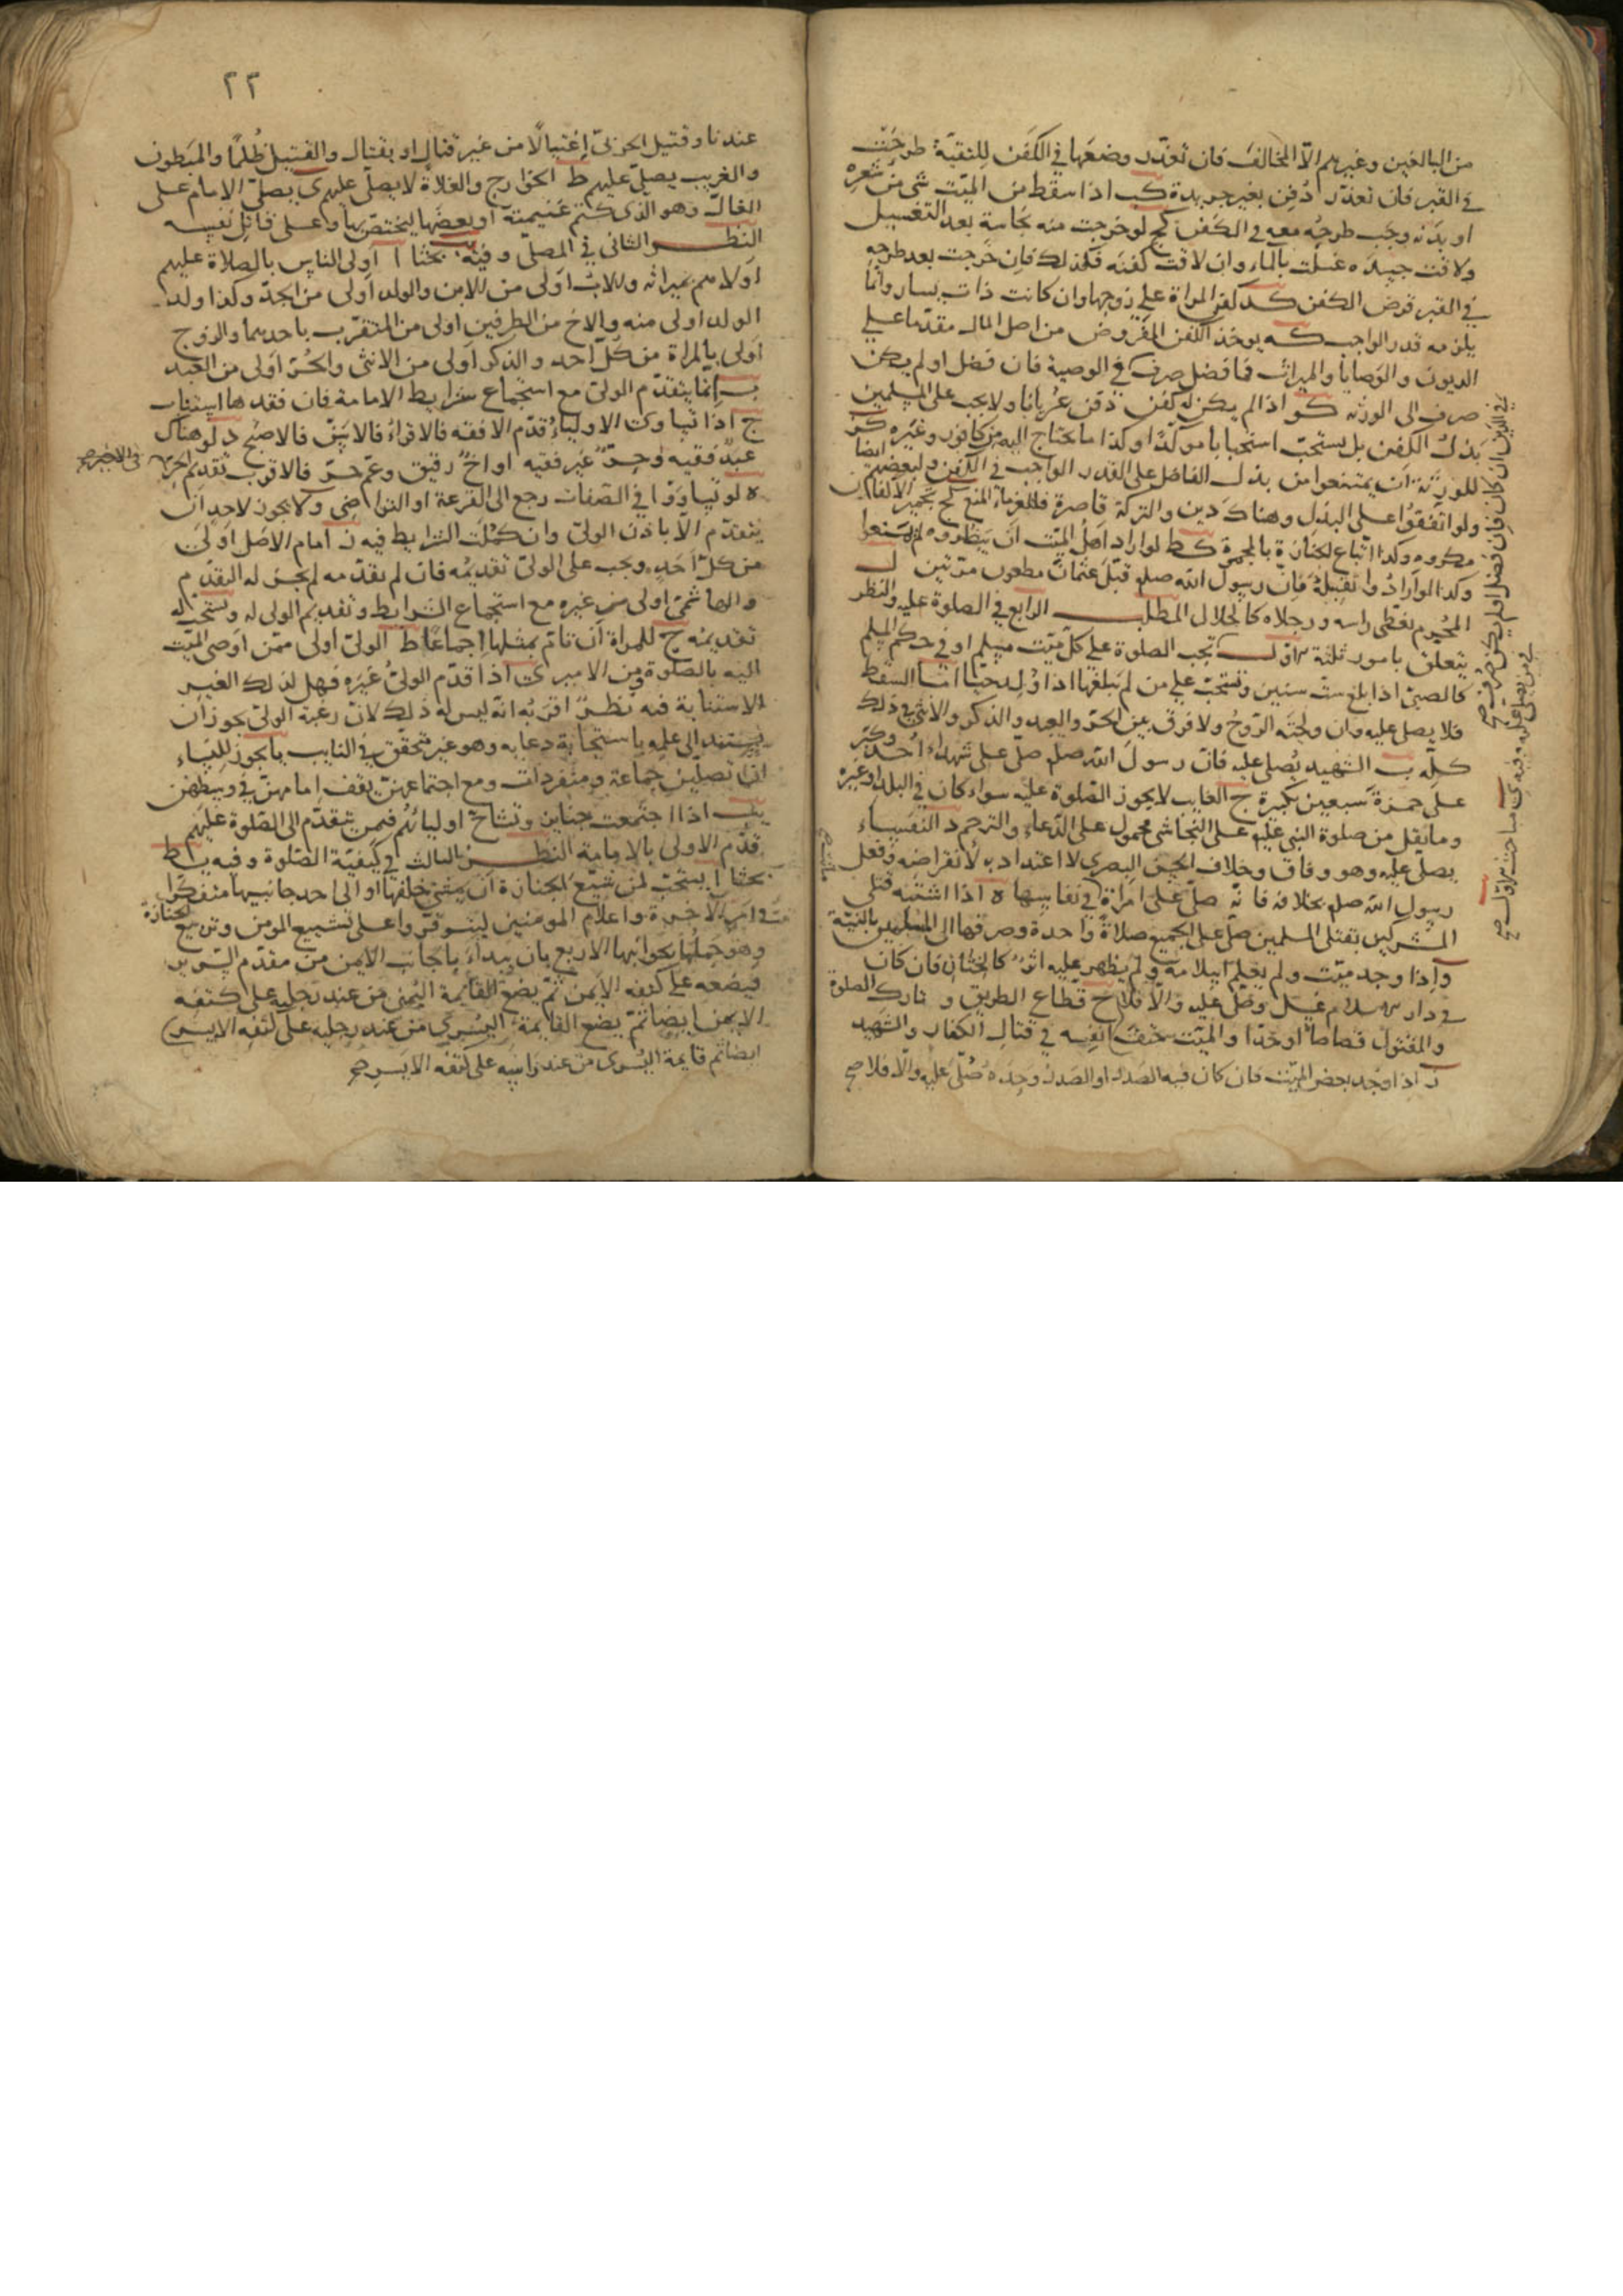 من البالغين وغيرهم الا المخالف فان تعذر وضعها في الكفن للتقية طرحت
في القبر فان تعذر دفن بغير جريدة كب اذا سقط من الميت شئ من شعره
او بدنه وجب طرحه معه في الكفن كج لو خرجت منه نجاسة بعد التغسيل
ولاقت جسده غسلت بالماء وان لاقت كفنه فكذلك فان خرجت بعد طرحه
في القبر قرض الكفن كد كفن المراة على زوجها وان كانت ذات يسار وانما
يلزمه قدر الواجب كه يوخذ الكفن المفروض من اصل المال مقدما على
الديون والوصايا والميراث فما فضل صرف في الوصية فان فضل او لم يكن
صرف الى الورثه كو اذا لم يكن له كفن دفن عريانا ولا يجب على المسلمين
بذل الكفن بل يستحب استحبابا موكدا وكذا ما يحتاج اليه من كافور وغيره كز
للورثة ان يمتنعوا من بذل الفاضل على القدر الواجب في الكفن ولبعضهم ايضا
ولو اتفقوا على البذل وهناك دين والتركة قاصرة فللغرماء المنع كح تجمير الاكفان
مكروه وكذا اتباع الجنازة بالمجمرة كط لو اراد اهل الميت ان ينظروه لم يمنعوا
وكذا لو ارادوا تقبيله فان رسول الله صلم قبل عثمان مظعون مرتين ل
المحرم يغطى راسه ورجلاه كالحلال المطلب الرابع في الصلوة عليه والنظر
يتعلق بامور ثلثة الاول تجب الصلوة على كل ميت مسلم او في حكم المسلم
كالصبي اذا بلغ ست سنين وتستحب على من لم يبلغها اذا ولد حيا اما السقط
فلا يصلى عليه وان ولجته الروح ولا فرق بين الحر والعبد والذكر والانثى في ذلك
كله ب الشهيد يصلى عليه فان رسول الله صلم صلى على شهداء احد وكبر
على حمزة سبعين تكبيرة ج الغايب لا يجوز الصلوة عليه سواء كان في البلد او غيره
وما نقل من صلوة النبي عليه على النجاشي محمول على الدعاء والترحم د النفساء
يصلى عليه وهو وفاق وخلاف الحسن البصري لا اعتداد به لانقراضه وفعل
رسول الله صلم بخلافه فانه صلى على امراة في نفاسها ه اذا اشتبه قتلى
المشركين بقتلى المسلمين صلى على الجميع صلاة واحدة وصرفها الى المسلمين بالنية
و اذا وجد ميت ولم يعلم اسلامه ولم يظهر عليه اثر كالختان فان كان
في دار الاسلام غسل وصلى عليه والا فلا ح قطاع الطريق و تارك الصلوة
والمقتول قصاصا او حدا والميت حتف انفه في قتال الكفار والشهيد
ز اذا وجد بعض الميت فان كان فيه الصدر او الصدر وحده صلى عليه والا فلا صح
في الدين ان كان فان فضل او لم يكن صرف صح
في من يصلى عليه وفيه مباحث الاول صح
٢٢
عندنا وقتيل الحربي اغتيالا من غير قتال او بقتال والقتيل ظلما والمبطون
والغريب يصلى عليهم ط الخوارج والغلاة لا يصلى عليهم ى يصلى الامام على
الغال وهو الذى كتم غنيمته او بعضها ليختص بها وعلى قاتل نفسه
النظر الثاني في المصلى وفيه بحثا ا اولى الناس بالصلاة عليهم
اولاهم بميراثه والاب اولى من الابن والولد اولى من الجد وكذا ولد
الولد اولى منه والاخ من الطرفين اولى من المتقرب باحدهما والزوج
اولى بالمراة من كل احد والذكر اولى من الانثى والحر اولى من العبد
ب انما يتقدم الولى مع استجماع شرايط الامامة فان فقدها استناب
ج اذا تساوت الاولياء قدم الافقه فالاقرا فالاسن فالاصبح د لو هناك
عبد فقيه وحر غير فقيه او اخ رقيق وعم حر فالاقرب تقديم الحر
في الاخير صح
ه لو تساووا في الصفات رجع الى القرعة او التراضى و لا يجوز لاحد ان
يتقدم الا باذن الولى وان كملت الشرايط فيه ز امام الاصل اولى
من كل احد ويجب على الولى تقديمه فان لم يقدمه لم يجز له التقدم
والهاشمى اولى من غيره مع استجماع الشرايط وتقديم الولى له ويستحب له
تقديمه ح للمراة ان تاتم بمثلها اجماعا ط الولى اولى ممن اوصى الميت
اليه بالصلوة ومن الامير ى اذا قدم الولى غيره فهل لذلك الغير
الاستنابة فيه نظر اقربه انه ليس له ذلك لان رغبة الولى يجوز ان
يستند الى علمه باستجابة دعايه وهو غير متحقق في النايب يا يجوز للنساء
ان تصلين جماعة ومنفردات ومع اجتماعهن يقف امامهن في وسطهن
يب اذا اجتمعت جنايز وتشاح اولياوهم فيمن يتقدم الى الصلوة عليهم
قدم الاولى بالامامة النظر الثالث في كيفية الصلوة وفيه يط
بحثا ا يستحب لمن شيع الجنازة ان يمشى خلفها او الى احد جانبيها متفكرا
في امر الاخرة واعلام المومنين ليتوفروا على تشييع المومن وتربيع الجنازة
وهو حملها بجوانبها الاربع بان يبدا بالجانب الايمن من مقدم السرير
فيضعه على كتفه الايمن ثم يضع القايمة اليمنى من عند رجليه على كتفه
الايمن ايضا ثم يضع القايمة اليسرى من عند رجليه على كتفه الايسر
ايضا ثم قايمة اليسرى من عند راسه على كتفه الايسر صح